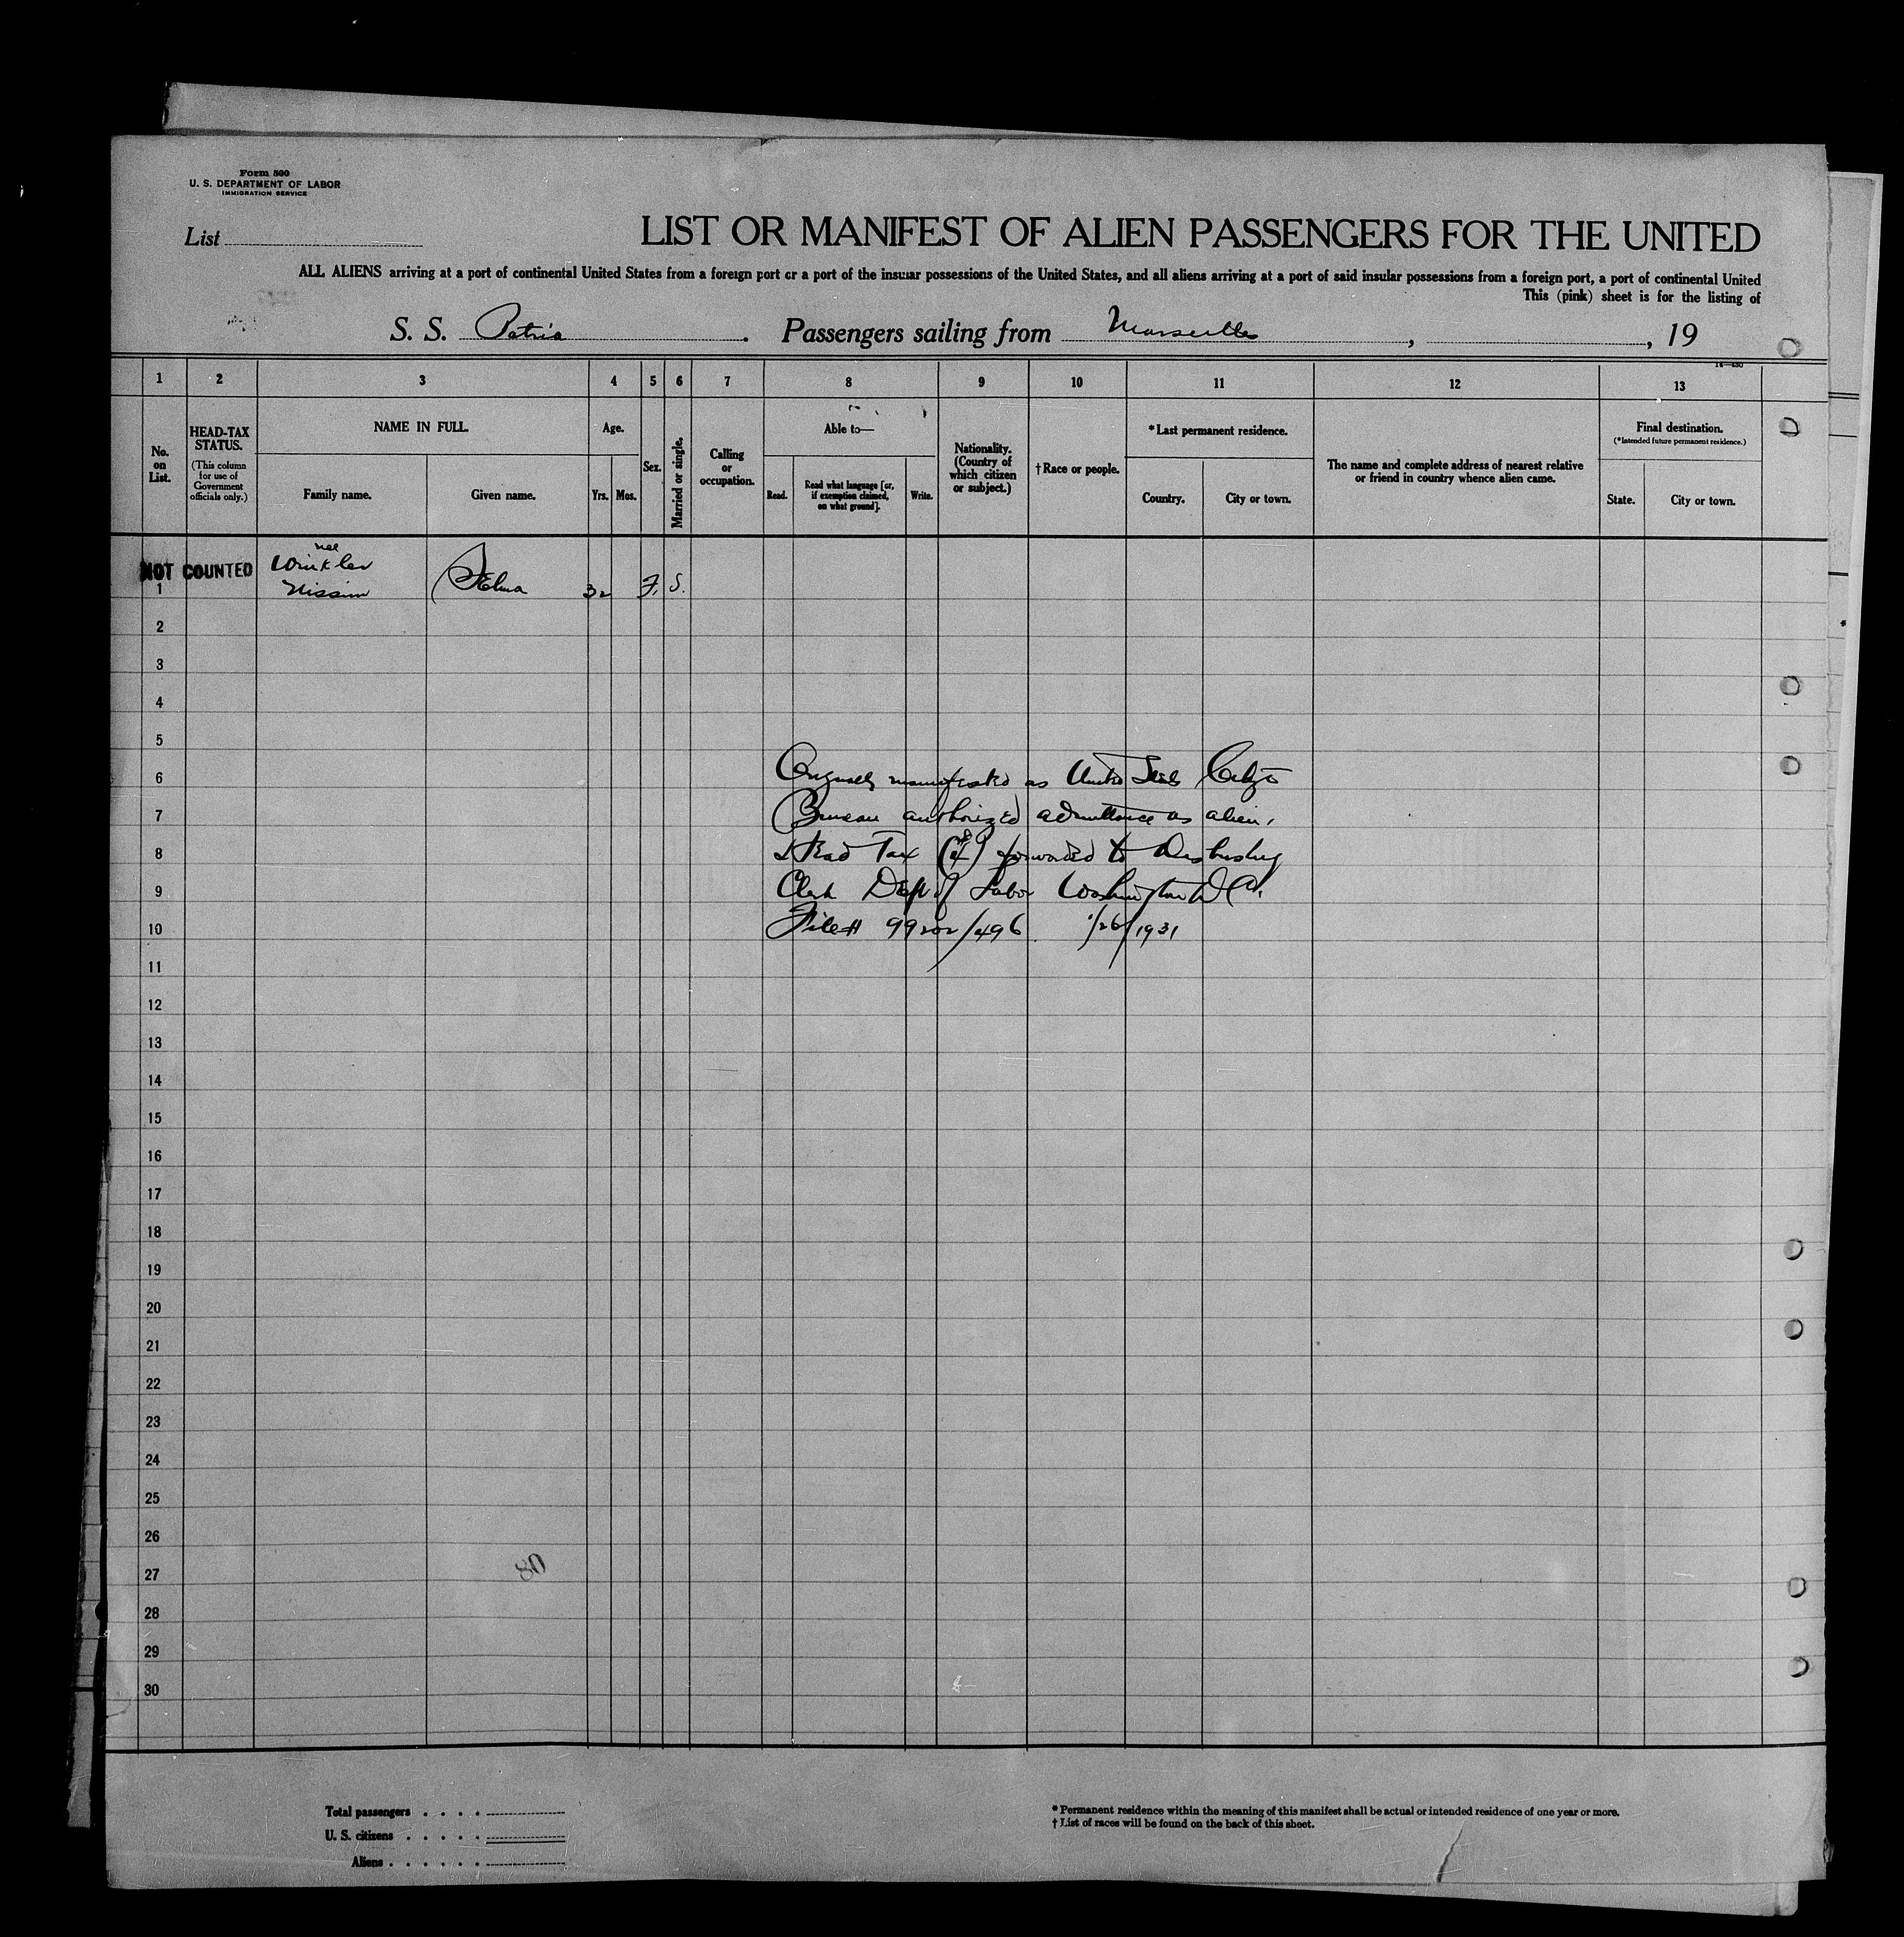 Form 500
U. S. DEPARTMENT OF LABOR
IMMIGRATION SERVICE
List
LIST OR MANIFEST OF ALIEN PASSENGERS FOR THE UNITED
ALL ALIENS arriving at a port of continental United States from a foreign port or a port of the insular possessions of the United States, and all aliens arriving at a port of said insular possessions from a foreign port, a port of continental United
This (pink) sheet is for the listing of
S. S. Patria . Passengers sailing from Marseilles , , 19
1 2 3 4 5 6 7 8 9 10 11 12 13
No. on List.
HEAD-TAX STATUS.
(This column for use of Government officials only.)
NAME IN FULL.
Family name.
Given name.
Age.
Yrs.
Mos.
Sex.
Married or single.
Calling or occupation.
Able to—
Read.
Read what language [or, if exemption claimed, on what ground].
Write.
Nationality. (Country of which citizen or subject.)
† Race or people.
* Last permanent residence.
Country.
City or town.
The name and complete address of nearest relative or friend in country whence alien came.
Final destination.
(*Intended future permanent residence.)
State.
City or town.
nee
NOT COUNTED Winkler
1 Nissim Selma 32 F. S.
2
3
4
5
6 Originally manifested as United States
7 Bureau authorized admittance as alien,
8 Head Tax forwarded to Disbursing
9 Clerk Dept of Labor Washington D.C.
10 File# 99202/496 1/26/1931
11
12
13
14
15
16
17
18
19
20
21
22
23
24
25
26
27
28
29
30
Total passengers
U. S. citizens
Aliens
* Permanent residence within the meaning of this manifest shall be actual or intended residence of one year or more.
† List of races will be found on the back of this sheet.